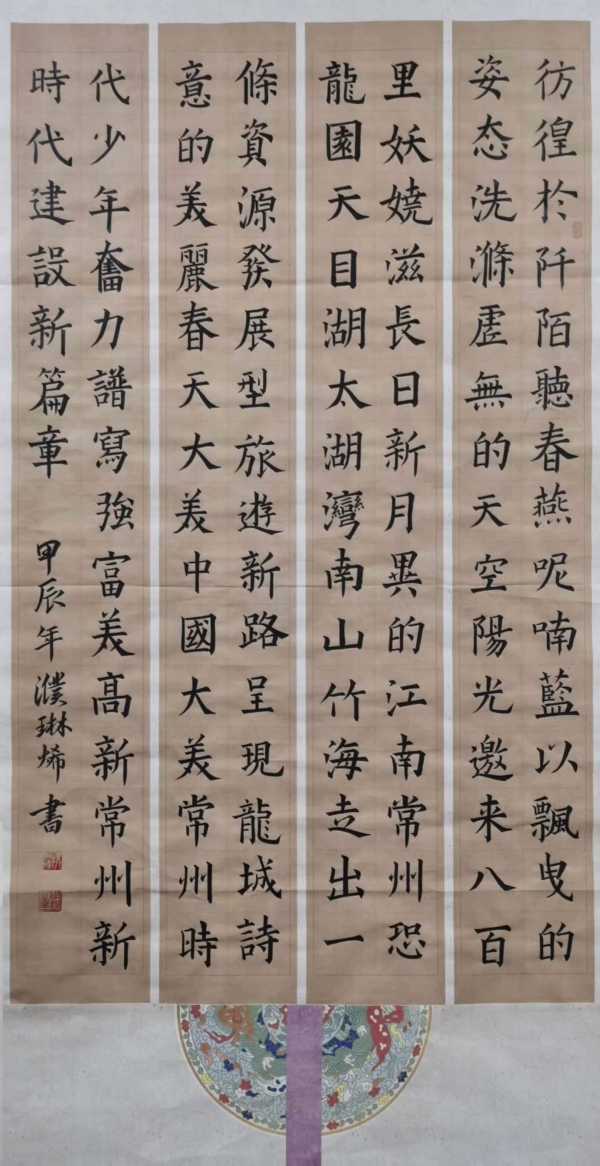 彷徨於阡陌聽春燕呢喃藍以飄曳的
姿态洗滌虛無的天空陽光邀来八百
里妖嬈滋長日新月異的江南常州恐
龍園天目湖太湖灣南山竹海走出一
條資源發展型旅遊新路呈現龍城詩
意的美麗春天大美中國大美常州時
代少年奮力譜寫強富美高新常州新
時代建設新篇章
甲辰年濮琳烯書